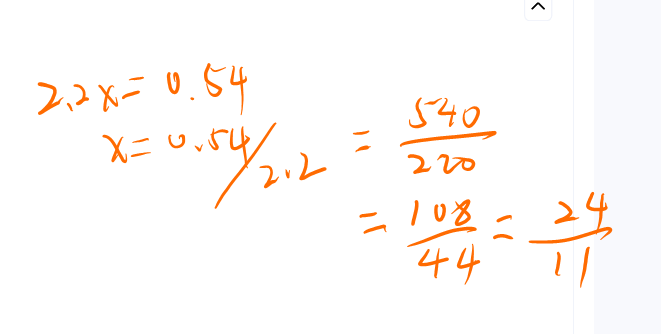 2.2x = 0.54
x = 0.54/2.2 = 540/220
= 108/44 = 24/11